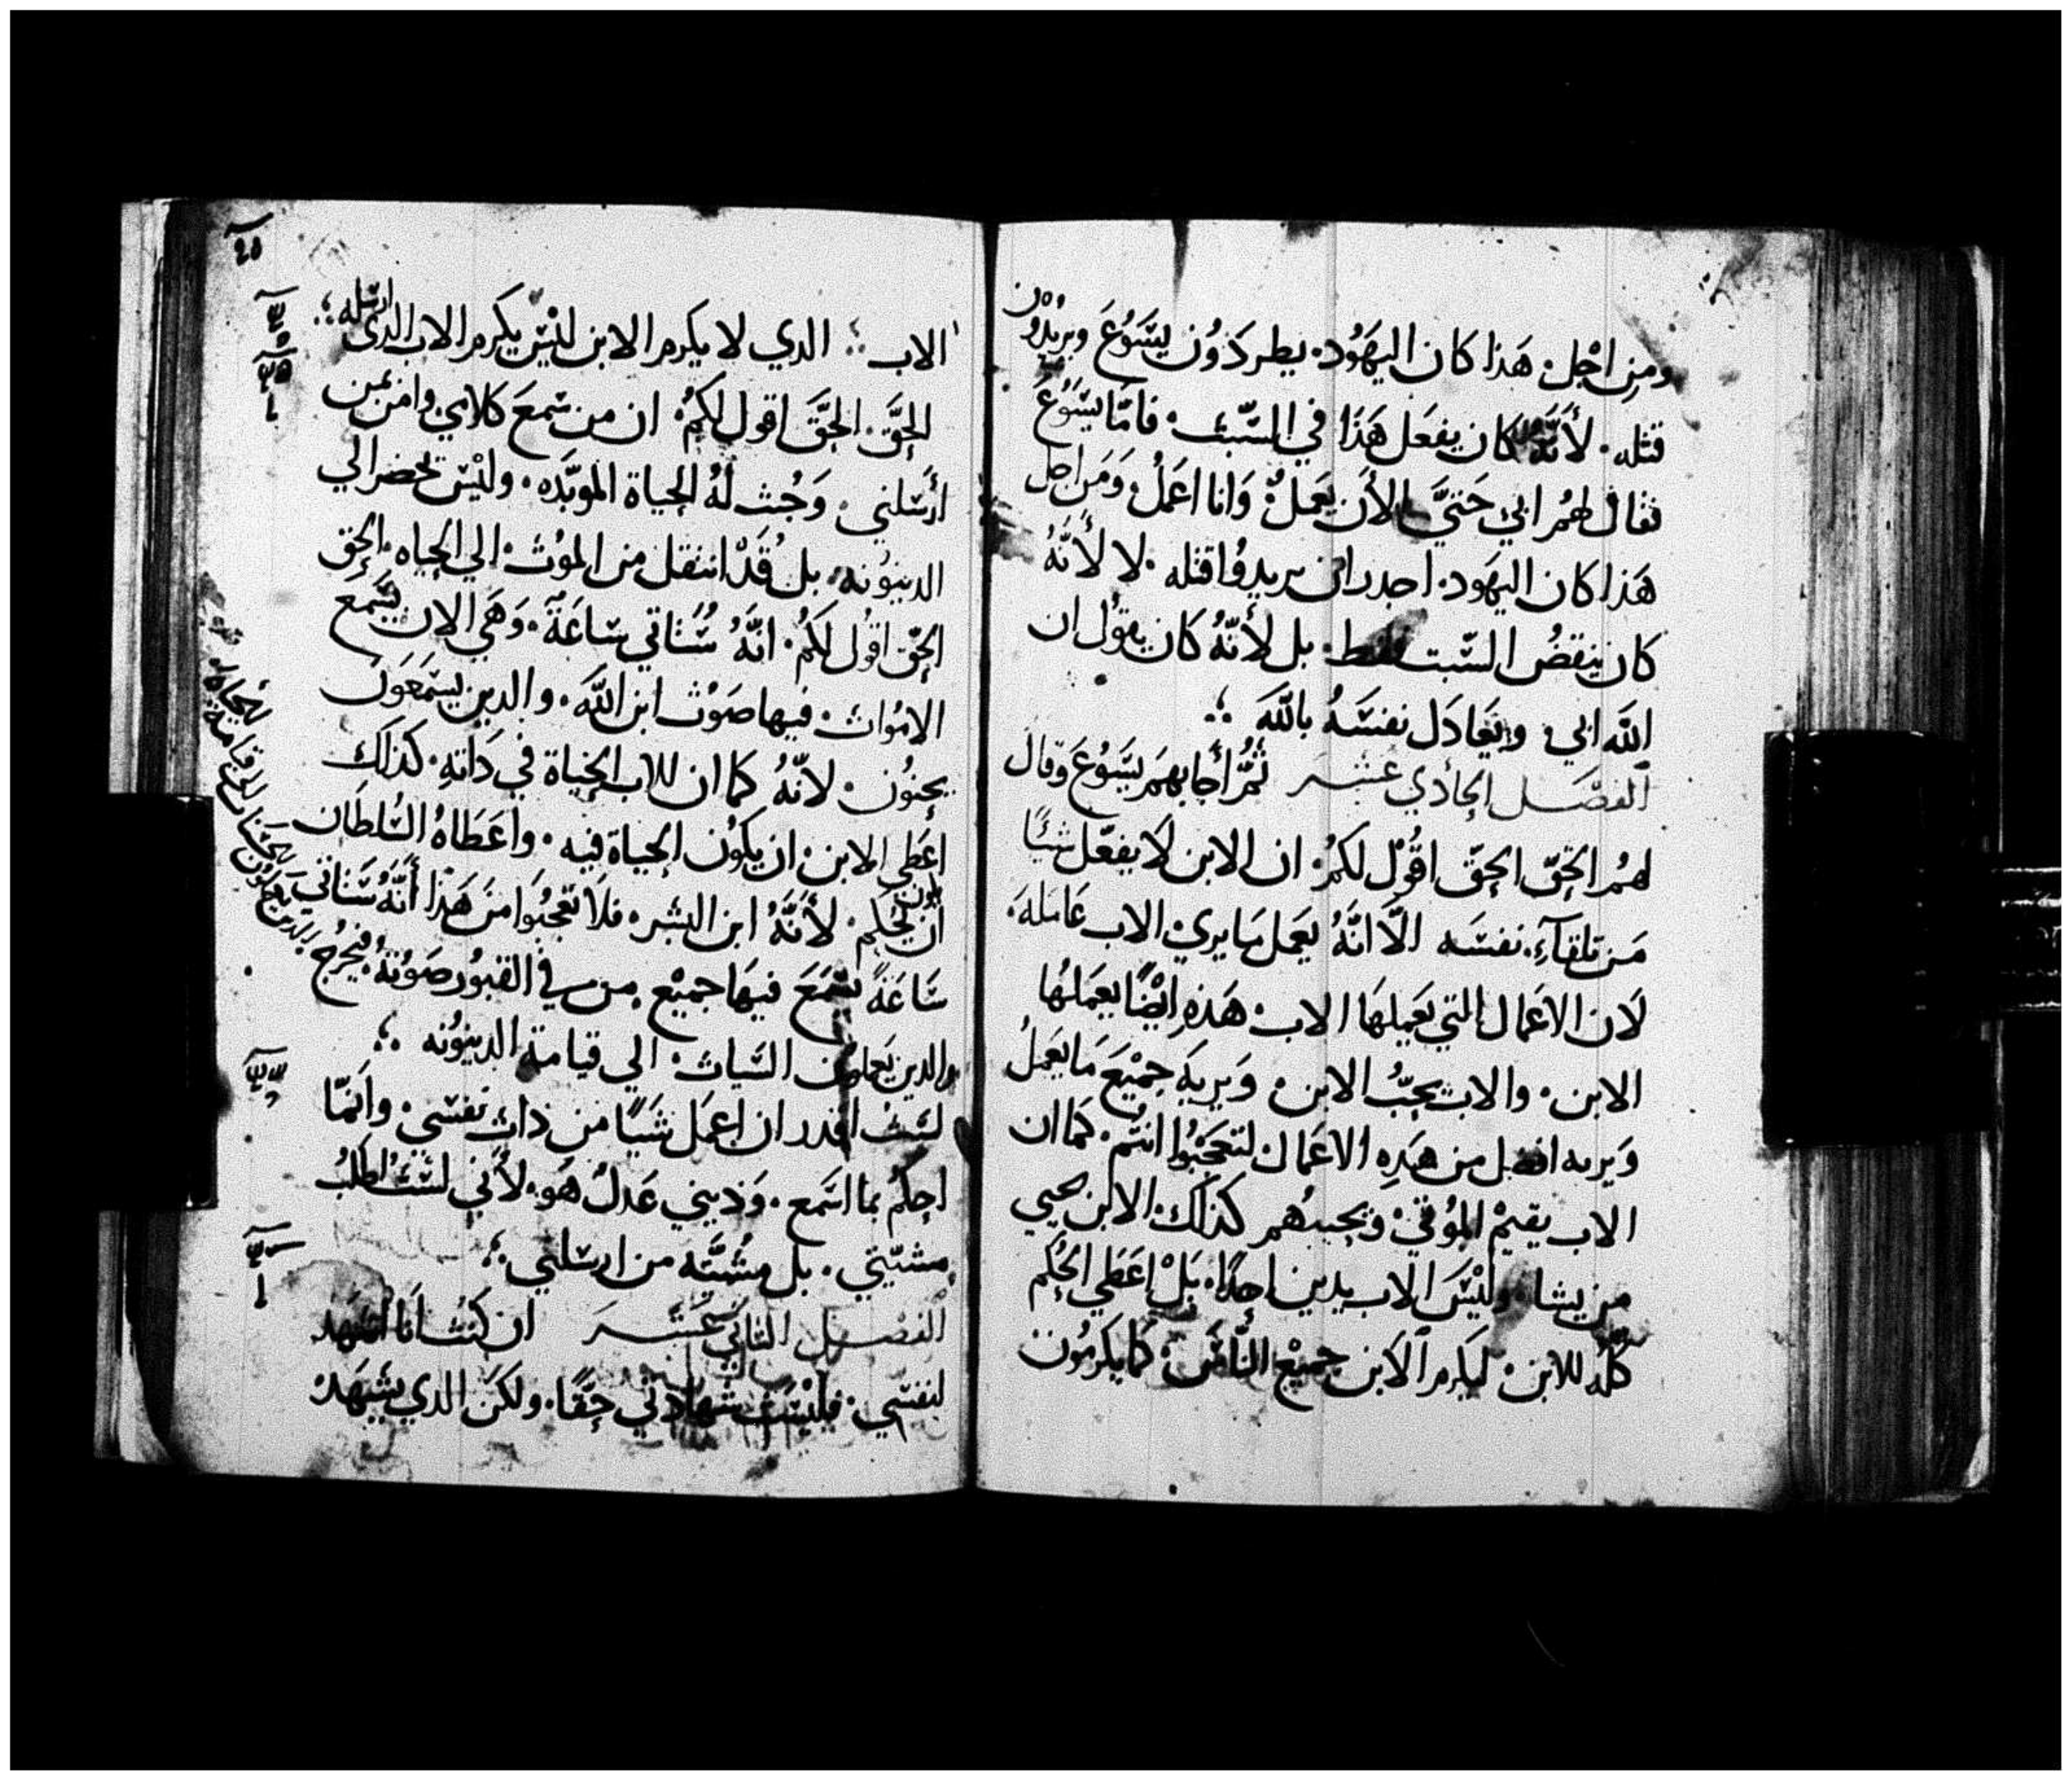 ومن اجل هَذا كان اليهَوُد يطردَوُن يسَوُعَ ويريدُون
قتله. لأنَّهُ كان يفعَل هَذَا في السَّبت. فامَّا يسَوُعَ
فقال لهُم ابي حَتيَّ الأن يعَملُ وَانا اعَملُ وَمَن اجل
هَذا كان اليهَود. اجدر ان يريدوُا قتله. لا لأنَّهُ
كان ينقضُ السَّبت فقط. بل لأنَّهُ كان يقوُل ان
اللَه ابي. ويعَادَل نفسَهُ باللَه
الفصَل الحادي عَشر ثمُّ أجابهمَ يسَوُعَ وقال
لهُم الحَقّ الحَقّ اقوُل لكمُ ان الابن لاَ يفعَل شئًا
مَن تلقآءِ نفسَه الَّا انَّهُ يعَمل مَا يري الاب عَامَلهَ.
لاَن الاعَمال التي يعَملهَا الاب هَذهِ ايضًا يعمَلهُا
الابن. والاب يحبُّ الابن وَيريهَ جميْعَ مَا يعَملُ
وَيريه افضل من هَذهِ الاعَمال لتعَجَبوُا انتم. كمَا ان
الاب يقيمْ الموُتي وَيحييهُم كذلَك الابن يحيي
من يشا. وليْسَ الاَب يدين احدًا. بَلْ اعَطي الحُكم
كلّه للابن ليَكرم الاَبن جميْع النَّاسَ كما يكرمُون
٢٥
الاب الدي لا يكرم الابن ليْسَ يكرم الاب الدي ارسَله
الحَقَّ الحَقَّ اقول لكمُ ان من سَمعَ كلامي وامن بمن
ارَسَلني. وَجُبت لهُ الحياة الموبَّده. وليْسَ يحَضر الي
الدينوُنه. بل قَدْ انتقل من الموُت الي الحياه. الحق
الحَقّ اقوُل لكمُ. انَّهُ سُتَاتي سَاعَةً. وَهَي الان يسَمع
الامَوات. فيها صَوُت ابن اللَه. والدين يسَمَعَون
يحيَوُن. لانّهُ كما ان للاب الحَياة في دَاته. كذلَك
اعَطي الابن ان يكوُن الحَياة فيه. واعَطَاهُ السُلطَان
ان يحَكم لأنَّهُ ابن البشر. فلاَ تعَجبوُا منَ هَذَا أنَّهُ سَتاتي
سَاعَةً يسَمَعَ فيهَا جميْع من في القبوُر صَوُتهُ فيخرُج
والدين يعَملون السَيات الي قيامة الدينوُنه
لسَتُ اقدر ان اعمَل شَيًا من ذات نفسَي. وانمَّا
احكمُ بما اسَمع. وَدَيني عَدلُ هَو. لأَني لسَتُ اطلبُ
مشيّتي. بل مشُيَّة من ارسَلني
الفصَل التاني عَشَر ان كنتُ اَنا اشهَد
لنفسَي. فليْسَت شهَادتي حَقًا. ولكنَ الدي يشهَد